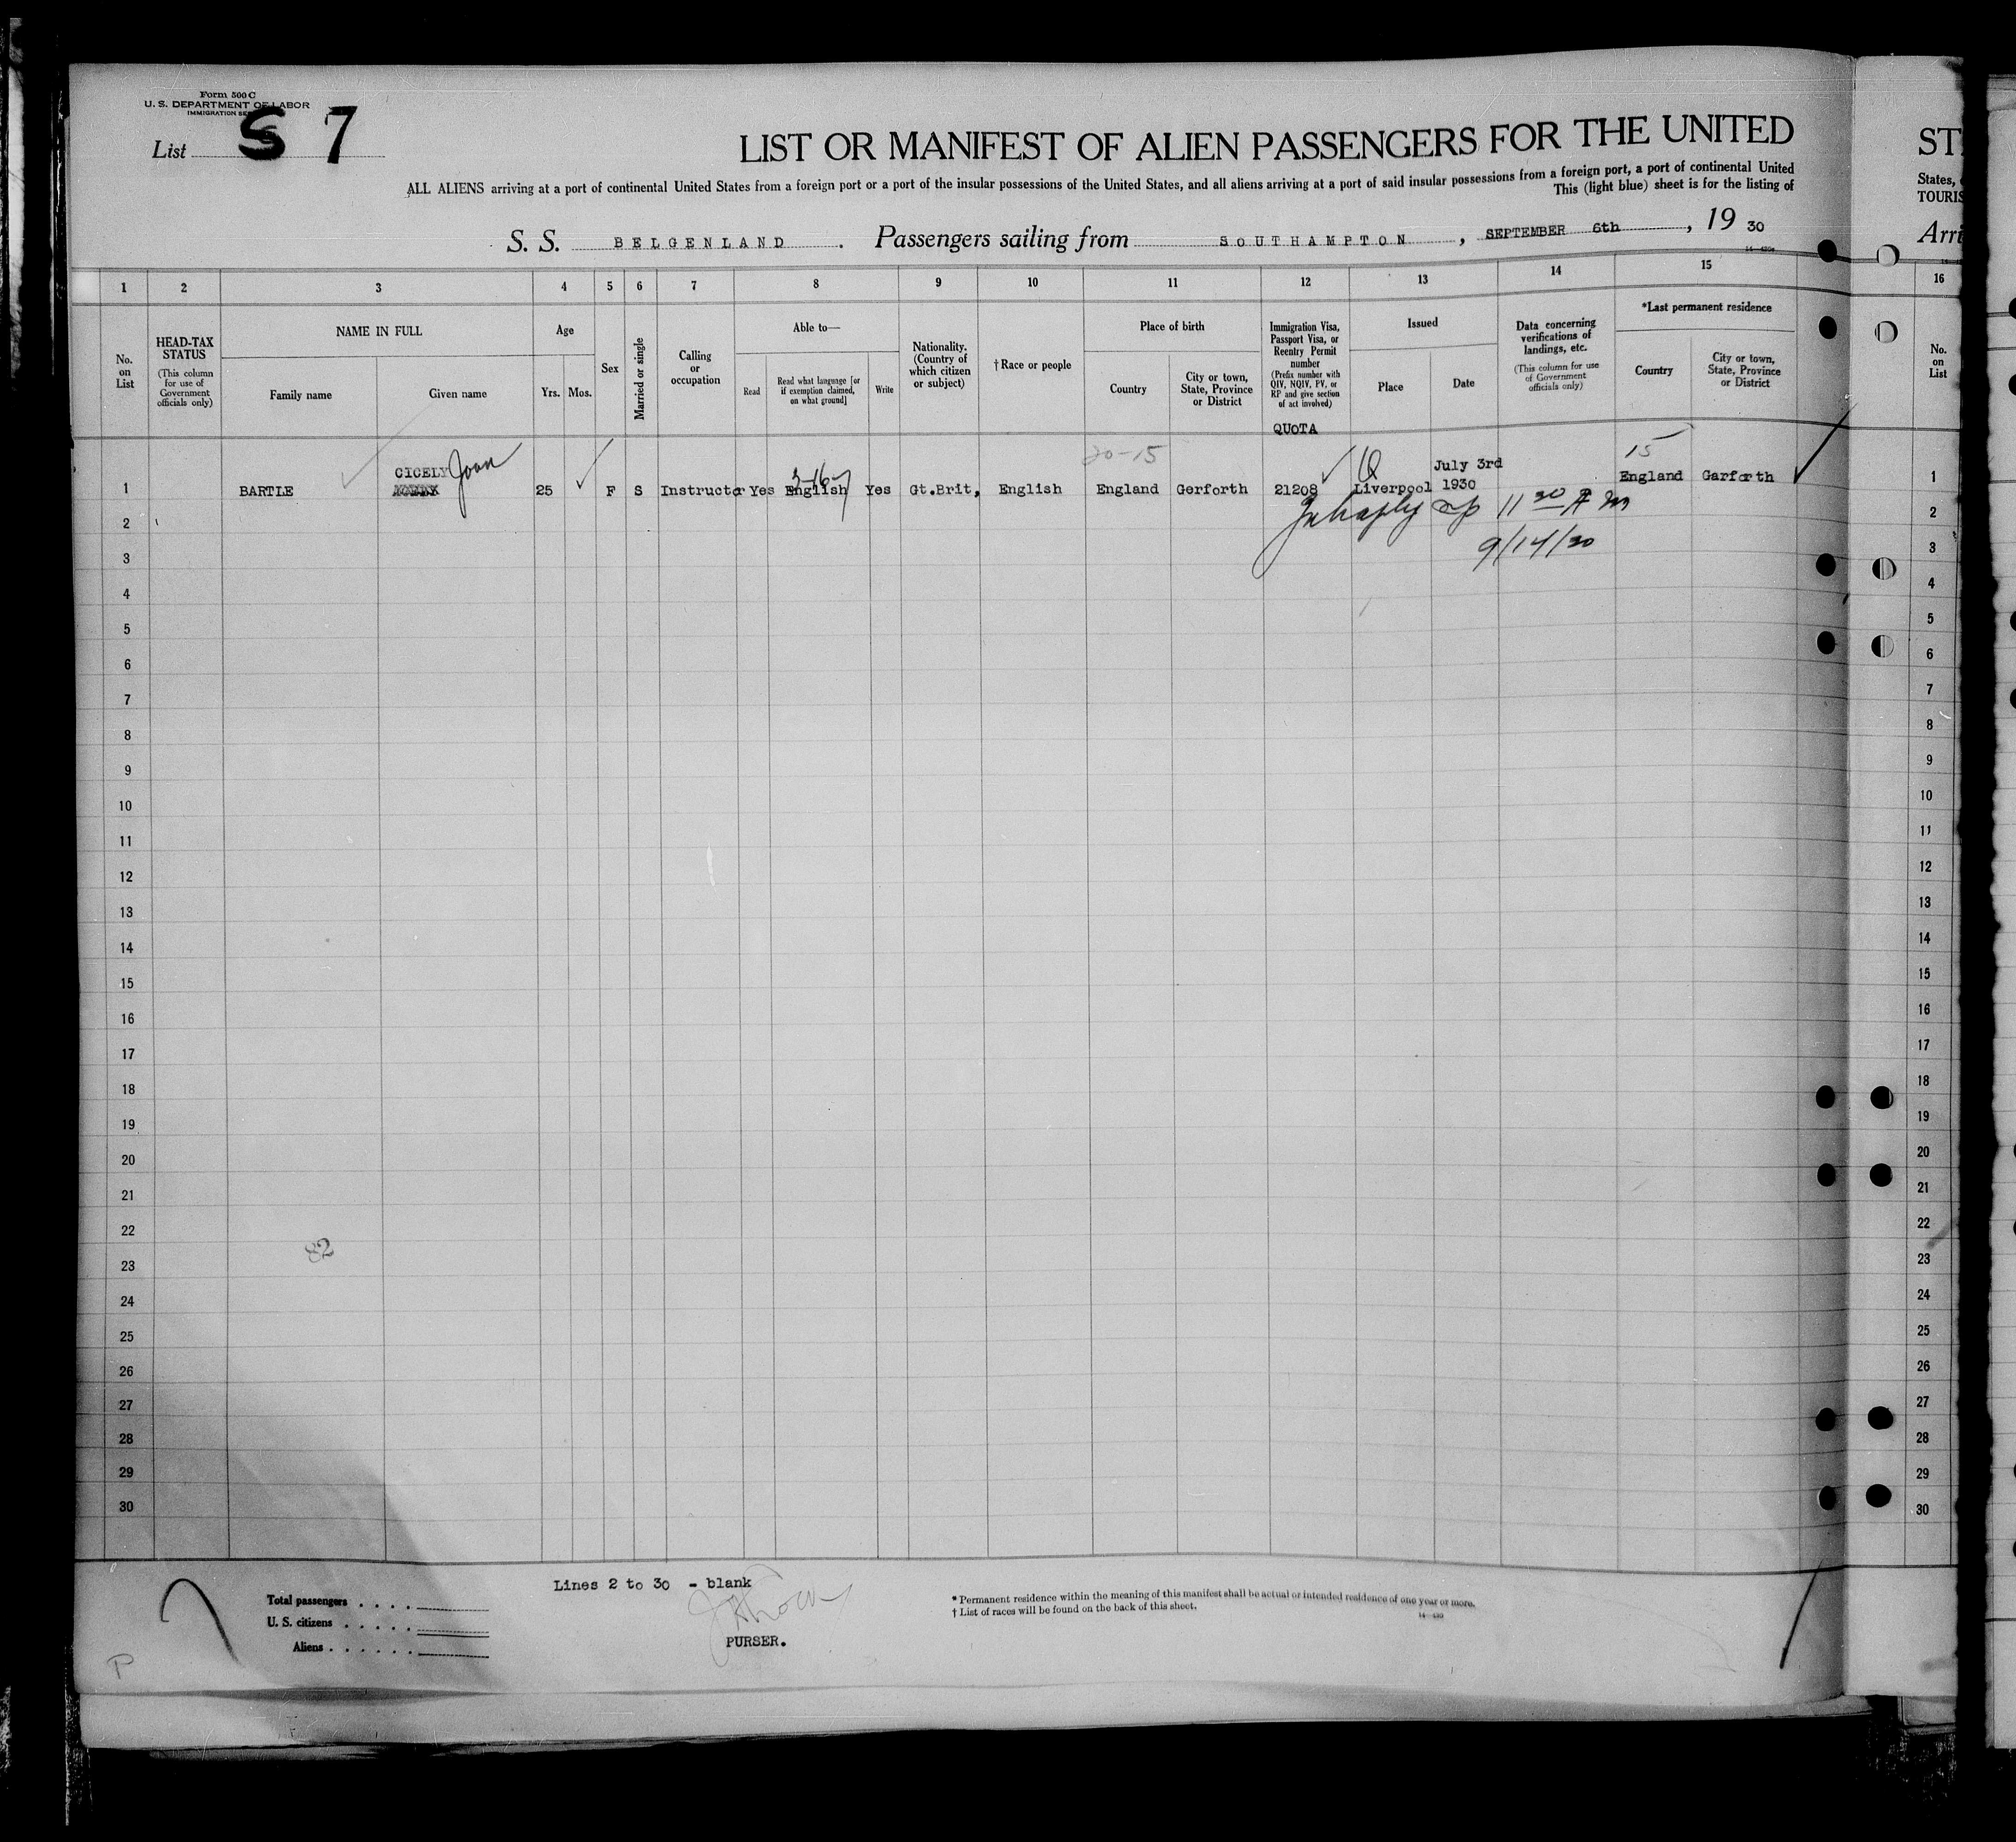 Form 500 C
U. S. DEPARTMENT OF LABOR
IMMIGRATION
List S 7
LIST OR MANIFEST OF ALIEN PASSENGERS FOR THE UNITED
ALL ALIENS arriving at a port of continental United States from a foreign port or a port of the insular possessions of the United States, and all aliens arriving at a port of said insular possessions from a foreign port, a port of continental United
This (light blue) sheet is for the listing of
S. S. BELGENLAND. Passengers sailing from SOUTHAMPTON, SEPTEMBER 6th, 1930
ST
States,
TOURIS
Arri
1 2 3 4 5 6 7 8 9 10 11 12 13 14 15 16
No. on List
HEAD-TAX STATUS (This column for use of Government officials only)
NAME IN FULL
Family name
Given name
Age
Yrs. Mos.
Sex
Married or single
Calling or occupation
Able to—
Read
Read what language [or if exemption claimed, on what ground]
Write
Nationality. (Country of which citizen or subject)
† Race or people
Place of birth
Country
City or town, State, Province or District
Immigration Visa, Passport Visa, or Reentry Permit number (Prefix number with QIV, NQIV, PV, or RP and give section of act involved)
QUOTA
Issued
Place
Date
Data concerning verifications of landings, etc. (This column for use of Government officials only)
*Last permanent residence
Country
City or town, State, Province or District
No. on List
20-15 15
CICELY Joan 3-16- Q July 3rd
1 BARTLE 25 F S Instructor Yes English Yes Gt.Brit, English England Gerforth 21208 Liverpool 1930 England Garforth 1
2 11 30 A m 2
3 9/14/30 3
4 4
5 5
6 6
7 7
8 8
9 9
10 10
11 11
12 12
13 13
14 14
15 15
16 16
17 17
18 18
19 19
20 20
21 21
22 22
82
23 23
24 24
25 25
26 26
27 27
28 28
29 29
30 30
Lines 2 to 30 - blank
Total passengers
U. S. citizens
Aliens
PURSER.
* Permanent residence within the meaning of this manifest shall be actual or intended residence of one year or more.
† List of races will be found on the back of this sheet.
P